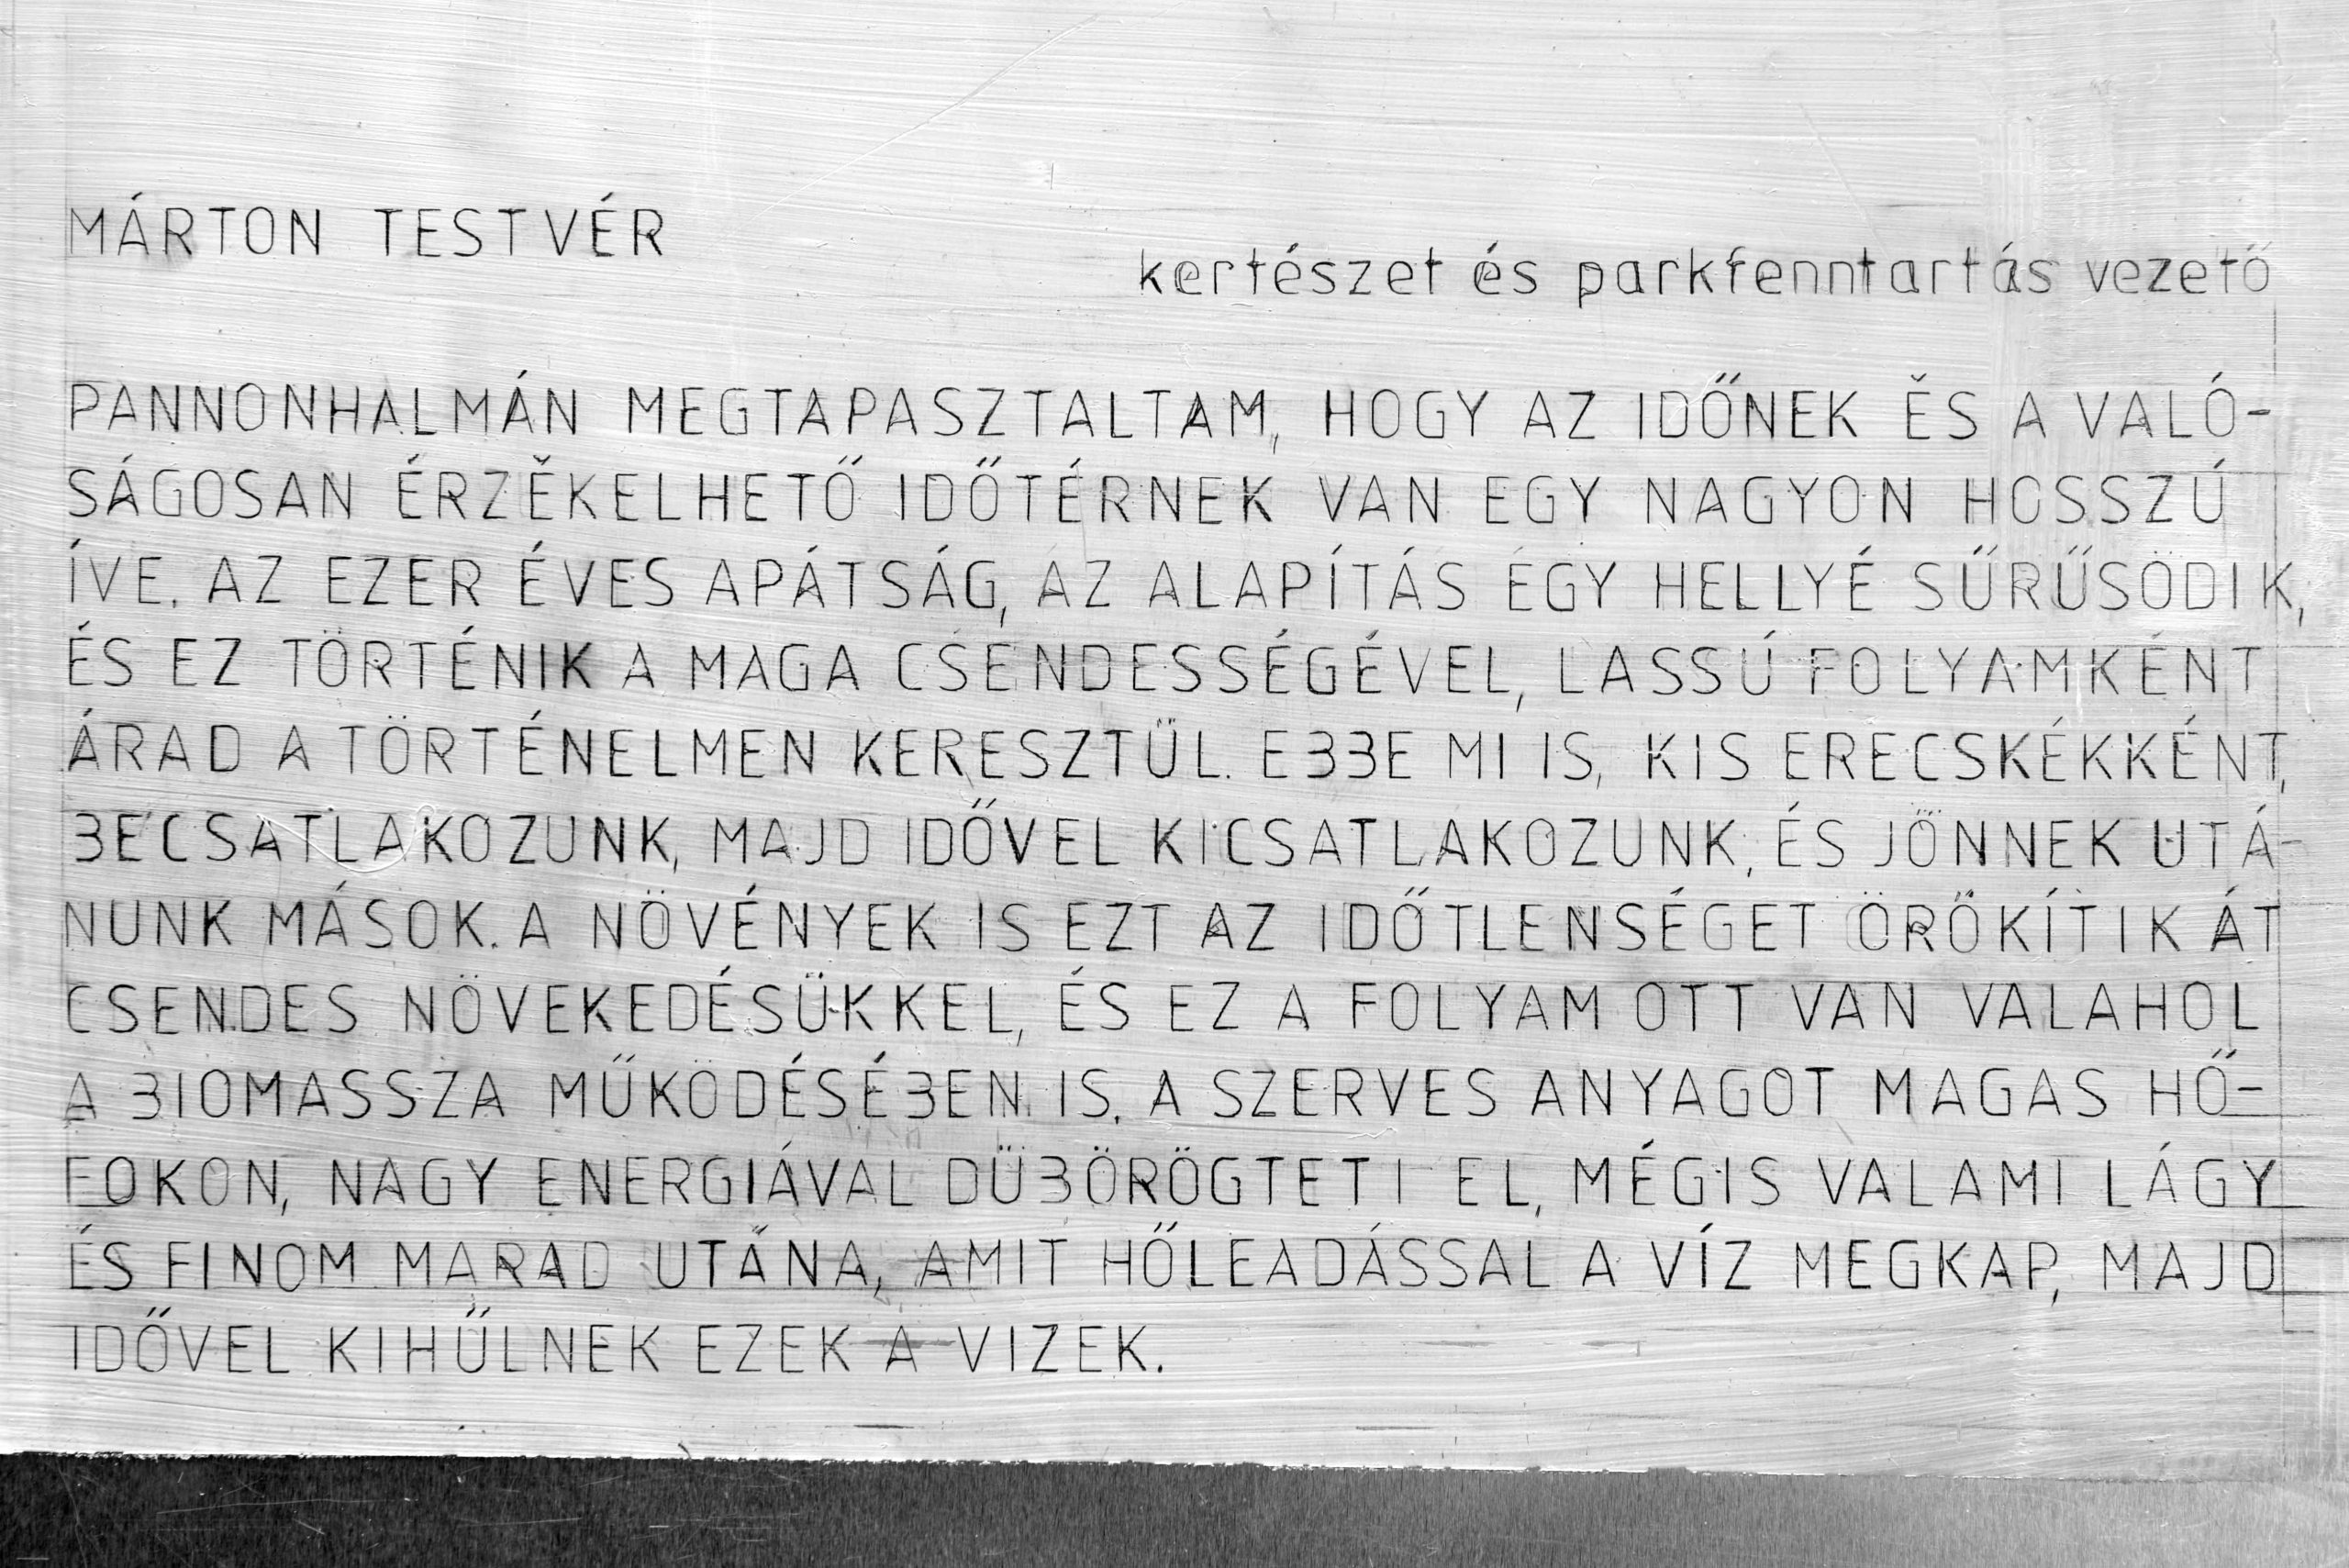 MÁRTON TESTVÉR
kertészet és parkfenntartás vezető
PANNONHALMÁN MEGTAPASZTALTAM, HOGY AZ IDŐNEK ÉS A VALÓ-
SÁGOSAN ÉRZÉKELHETŐ IDŐTÉRNEK VAN EGY NAGYON HOSSZÚ
ÍVE. AZ EZER ÉVES APÁTSÁG, AZ ALAPÍTÁS EGY HELLYÉ SŰRŰSÖDIK,
ÉS EZ TÖRTÉNIK A MAGA CSENDESSÉGÉVEL, LASSÚ FOLYAMKÉNT
ÁRAD A TÖRTÉNELMEN KERESZTÜL. EBBE MI IS, KIS ERECSKÉKKÉNT,
BECSATLAKOZUNK, MAJD IDŐVEL KICSATLAKOZUNK, ÉS JÖNNEK UTÁ-
NUNK MÁSOK. A NÖVÉNYEK IS EZT AZ IDŐTLENSÉGET ÖRÖKÍTIK ÁT
CSENDES NÖVEKEDÉSÜKKEL, ÉS EZ A FOLYAM OTT VAN VALAHOL
A BIOMASSZA MŰKÖDÉSÉBEN IS. A SZERVES ANYAGOT MAGAS HŐ-
FOKON, NAGY ENERGIÁVAL DÜBÖRÖGTETI EL, MÉGIS VALAMI LÁGY
ÉS FINOM MARAD UTÁNA, AMIT HŐLEADÁSSAL A VÍZ MEGKAP, MAJD
IDŐVEL KIHŰLNEK EZEK A VIZEK.